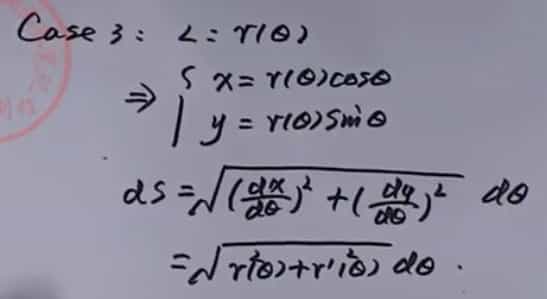 Case 3: L: r(θ)
⇒ { x = r(θ)cosθ
y = r(θ)sinθ
ds = √((dx/dθ)² + (dy/dθ)²) dθ
= √(r²(θ) + r'²(θ)) dθ.